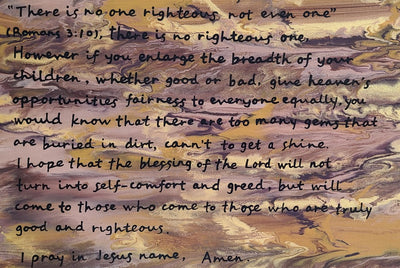 "There is no one righteous not even one"
(Romans 3:10), there is no righteous one,
However if you enlarge the breadth of your
children, whether good or bad, give heaven's
opportunities fairness to everyone equally. you
would know that there are too many gems that
are buried in dirt, cann't to get a shine.
I hope that the blessing of the Lord will not
turn into self-comfort and greed, but will
come to those who come to those who are truly
good and righteous.
I pray in Jesus name, Amen.